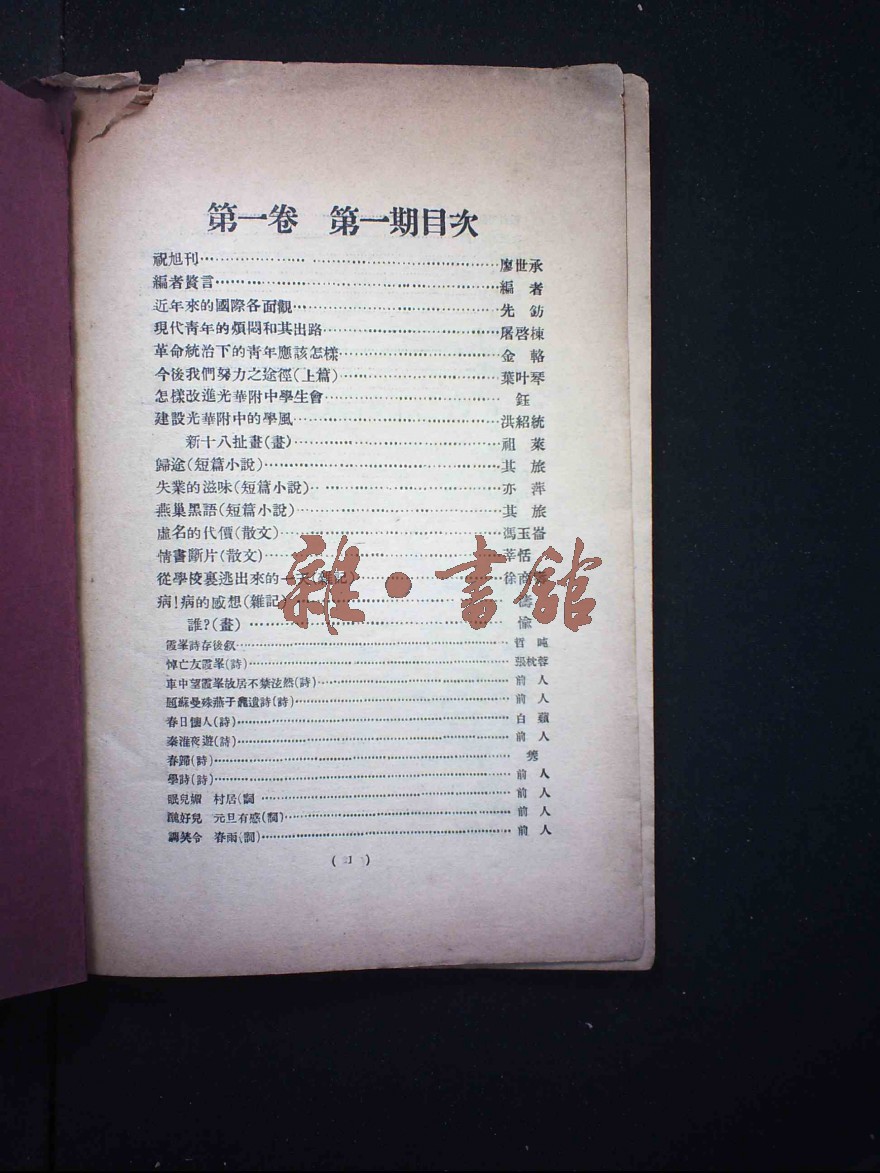 第一卷 第一期目次
祝旭刊……………………………………廖世承
編者贅言……………………………………編者
近年來的國際各面觀……………………………………先鈁
現代青年的煩悶和其出路……………………………………屠啓棟
革命統治下的青年應該怎樣……………………………………金輅
今後我們努力之途徑(上篇)……………………………………葉叶琴
怎樣改進光華附中學生會……………………………………鈺
建設光華附中的學風……………………………………洪紹統
新十八扯畫(畫)……………………………………祖萊
歸途(短篇小說)……………………………………其旅
失業的滋味(短篇小說)……………………………………亦萍
燕巢黑語(短篇小說)……………………………………其旅
虛名的代價(散文)……………………………………馮玉崙
情書斷片(散文)……………………………………莘恬
從學校裏逃出來的一天(雜記)……………………………………徐商
病!病的感想(雜記)……………………………………濤
誰?(畫)……………………………………愉
霞峯詩存後叙……………………………………哲
悼亡友霞峯(詩)……………………………………張枕蓉
車中望霞峯故居不禁泫然(詩)……………………………………前人
題蘇曼殊燕子龕遺詩(詩)……………………………………前人
春日懷人(詩)……………………………………白蘋
秦淮夜遊(詩)……………………………………前人
春歸(詩)……………………………………
學詩(詩)……………………………………前人
眼兒媚 村居(詞)……………………………………前人
醜奴兒 元旦有感(詞)……………………………………前人
調笑令 春雨(詞)……………………………………前人
(1)
雜·書館